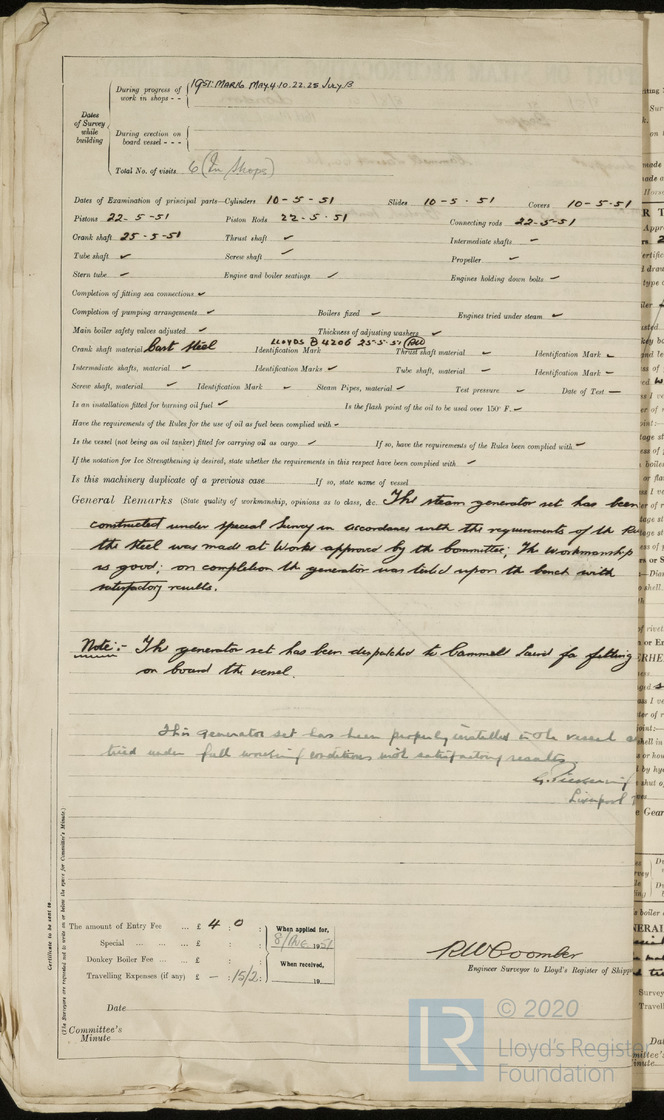 During progress of work in shops - - 1951: MAR 16 MAY 4. 10. 22. 25 July 13
Dates of Survey while building
During erection on board vessel - - -
Total No. of visits 6 (In Shops)
Dates of Examination of principal parts—Cylinders 10-5-51 Slides 10-5-51 Covers 10-5-51
Pistons 22-5-51 Piston Rods 22-5-51 Connecting rods 22-5-51
Crank shaft 25-5-51 Thrust shaft ✓ Intermediate shafts ✓
Tube shaft ✓ Screw shaft ✓ Propeller ✓
Stern tube ✓ Engine and boiler seatings ✓ Engines holding down bolts ✓
Completion of fitting sea connections ✓
Completion of pumping arrangements ✓ Boilers fixed ✓ Engines tried under steam ✓
Main boiler safety valves adjusted ✓ Thickness of adjusting washers ✓
Crank shaft material Cast Steel Identification Mark LLOYDS B 4206 25-5-51 RW Thrust shaft material ✓ Identification Mark ✓
Intermediate shafts, material ✓ Identification Marks ✓ Tube shaft, material ✓ Identification Mark ✓
Screw shaft, material ✓ Identification Mark ✓ Steam Pipes, material ✓ Test pressure ✓ Date of Test —
Is an installation fitted for burning oil fuel ✓ Is the flash point of the oil to be used over 150° F. ✓
Have the requirements of the Rules for the use of oil as fuel been complied with ✓
Is the vessel (not being an oil tanker) fitted for carrying oil as cargo ✓ If so, have the requirements of the Rules been complied with ✓
If the notation for Ice Strengthening is desired, state whether the requirements in this respect have been complied with ✓
Is this machinery duplicate of a previous case If so, state name of vessel
General Remarks (State quality of workmanship, opinions as to class, &c. The steam generator set has been
constructed under special Survey in accordance with the requirements of the
the Steel was made at Works approved by the Committee; The workmanship
is good; on completion the generator was tested upon the bench with
satisfactory results.
Note:- The generator set has been despatched to Cammell Laird for fitting
on board the vessel.
This generator set has been properly installed in the vessel
tried under full working conditions with satisfactory results
Liverpool
Certificate to be sent to
(The Surveyors are requested not to write on or below the space for Committee's Minute.)
The amount of Entry Fee ... £ 4 : 0 : When applied for,
Special ... ... ... £ : : 8/AUG 1951
Donkey Boiler Fee ... £ : : When received,
Travelling Expenses (if any) £ — : 15/2 : 19
RW Coomber
Engineer Surveyor to Lloyd's Register of Shipp
Date
Committee's Minute
LR © 2020
Lloyd's Register
Foundation